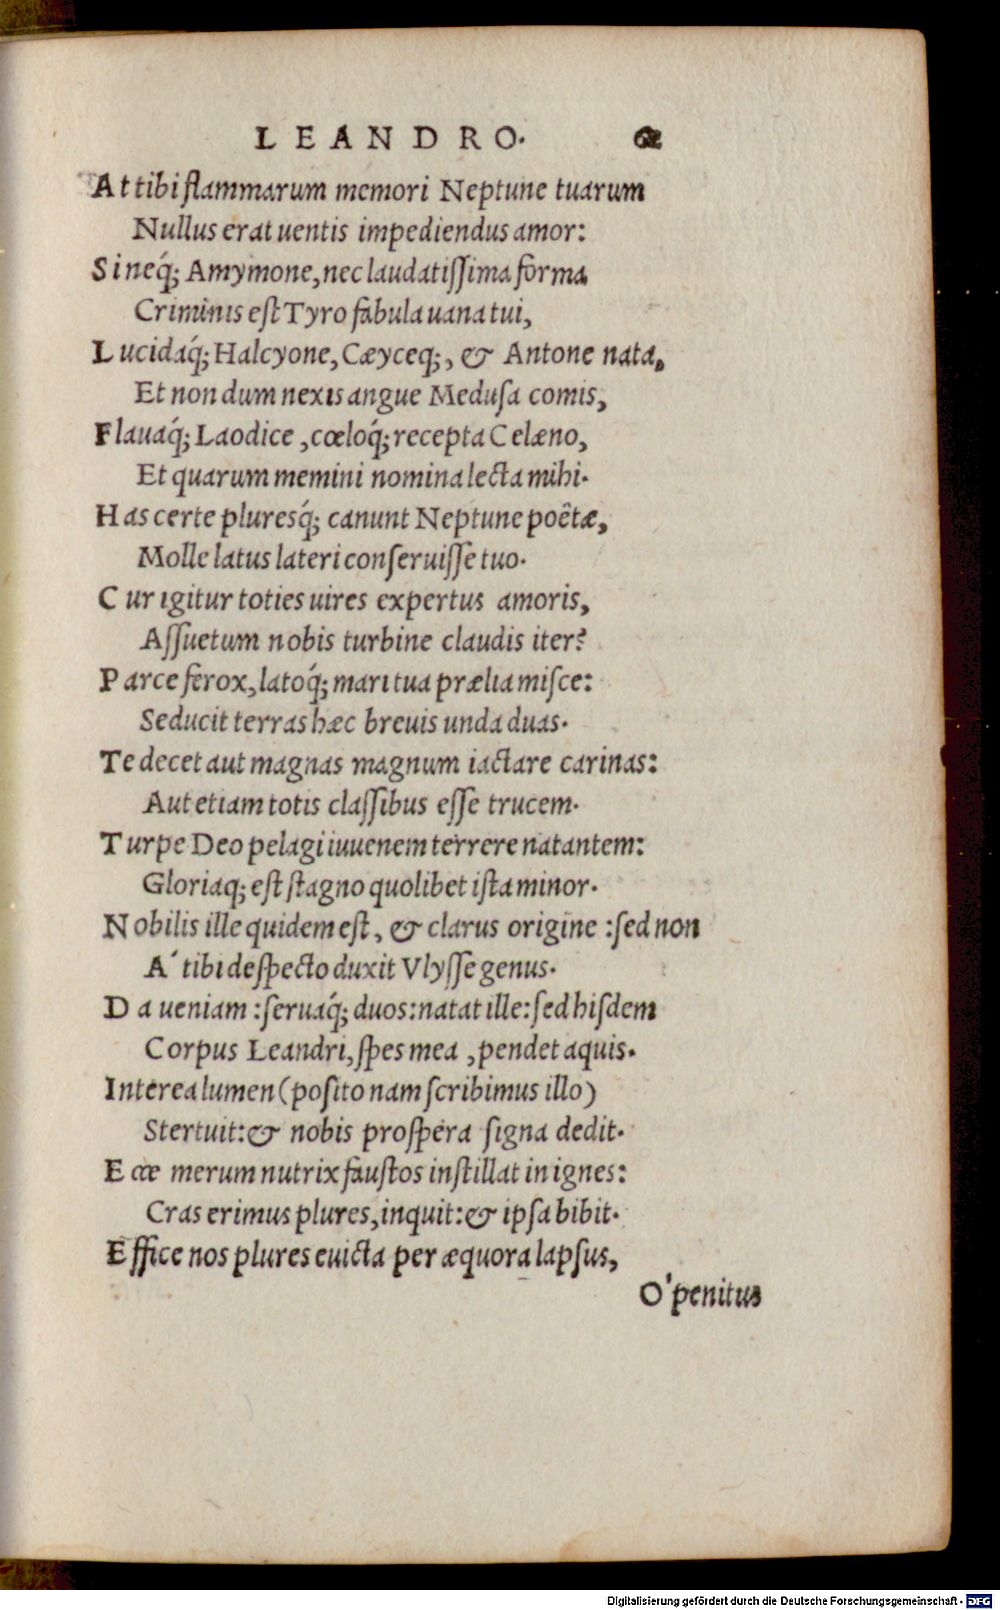 LEANDRO. 62
At tibi flammarum memori Neptune tuarum
Nullus erat uentis impediendus amor:
Si neq́; Amymone, nec laudatiſſima forma
Criminis eſt Tyro fabula uana tui,
Lucidaq́; Halcyone, Cæyceq;, & Antone nata,
Et nondum nexis angue Meduſa comis,
Flauaq́; Laodice, cœloq́; recepta Celæno,
Et quarum memini nomina lecta mihi.
Has certe pluresq́; canunt Neptune poêtæ,
Molle latus lateri conſeruiſſe tuo.
Cur igitur toties uires expertus amoris,
Aſſuetum nobis turbine claudis iter?
Parce ferox, latoq́; mari tua prælia miſce:
Seducit terras hæc breuis unda duas.
Te decet aut magnas magnum iactare carinas:
Aut etiam totis claſſibus eſſe trucem.
Turpe Deo pelagi iuuenem terrere natantem:
Gloriaq; eſt ſtagno quolibet iſta minor.
Nobilis ille quidem eſt, & clarus origine: ſed non
A´ tibi deſpecto duxit Vlyſſe genus.
Da ueniam: ſeruaq́; duos: natat ille: ſed hiſdem
Corpus Leandri, ſpes mea, pendet aquis.
Interea lumen (poſito nam ſcribimus illo)
Stertuit: & nobis proſpera ſigna dedit.
Ecce merum nutrix fauſtos inſtillat in ignes:
Cras erimus plures, inquit: & ipſa bibit.
Effice nos plures euicta per æquora lapſus,
O´ penitus
Digitalisierung gefördert durch die Deutsche Forschungsgemeinschaft - DFG